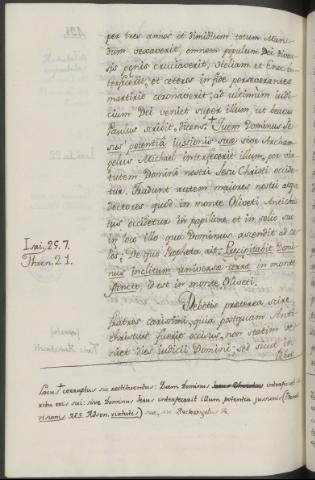 per tres annos et dimidium totum Mun-
dum vexaverit, omnem populum Dei diver-
sis penis cruciaverit, Heliam et Enoc in-
terficerit, et ceteros in fide perseverantes
martirio coronaverit; ad ultimum iudi-
cium Dei veniet super illum, ut beatus
Paulus scribit, dicens: + Quem Dominus Je-
sus potentia iussionis suae sive Archan-
gelus Michael interfecerit illum, per vir-
tutem Domini nostri Jesu Christi occide-
tur. Tradunt autem maiores nostri atque
doctores quod in monte Oliveti, Antichris-
tus occidetur in papilione, et in solio suo
in loco illo quo Dominus ascendit ad ce-
los: De quo Propheta ait: Precipitabit Domi-
nus inclitum universae terrae in monte
sancto, id est in monte Oliveti.
Isai, 25. 7.
Thren. 2 1.
Debetis praeterea scire
fratres carissimi, quia postquam Anti-
christus fuerit occisus, non statim ve-
niet dies iudicii Domini, sed sicut in
Libro
Locus + corruptus sic restituendus: Quem Dominus Jesus interficiet
spiritu oris sui: sive Dominus Jesus interfecerit illum potentia jussionis
suae, sive Archangelus &c